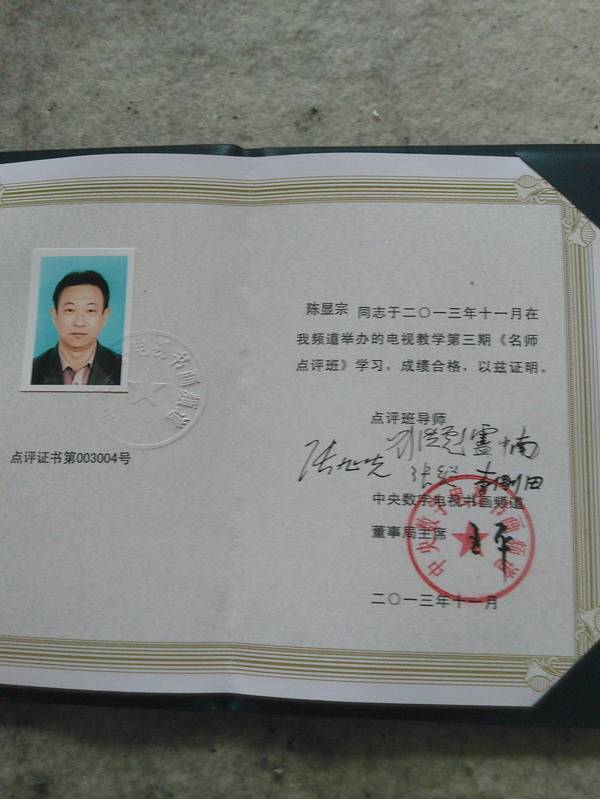 陈显宗 同志于二〇一三年十一月在
我频道举办的电视教学第三期《名师
点评班》学习，成绩合格，以兹证明。
点评证书第003004号
点评班导师
李刚田
中央数字电视书画频道
董事局主席
中央数字电视书画频道
二〇一三年十一月